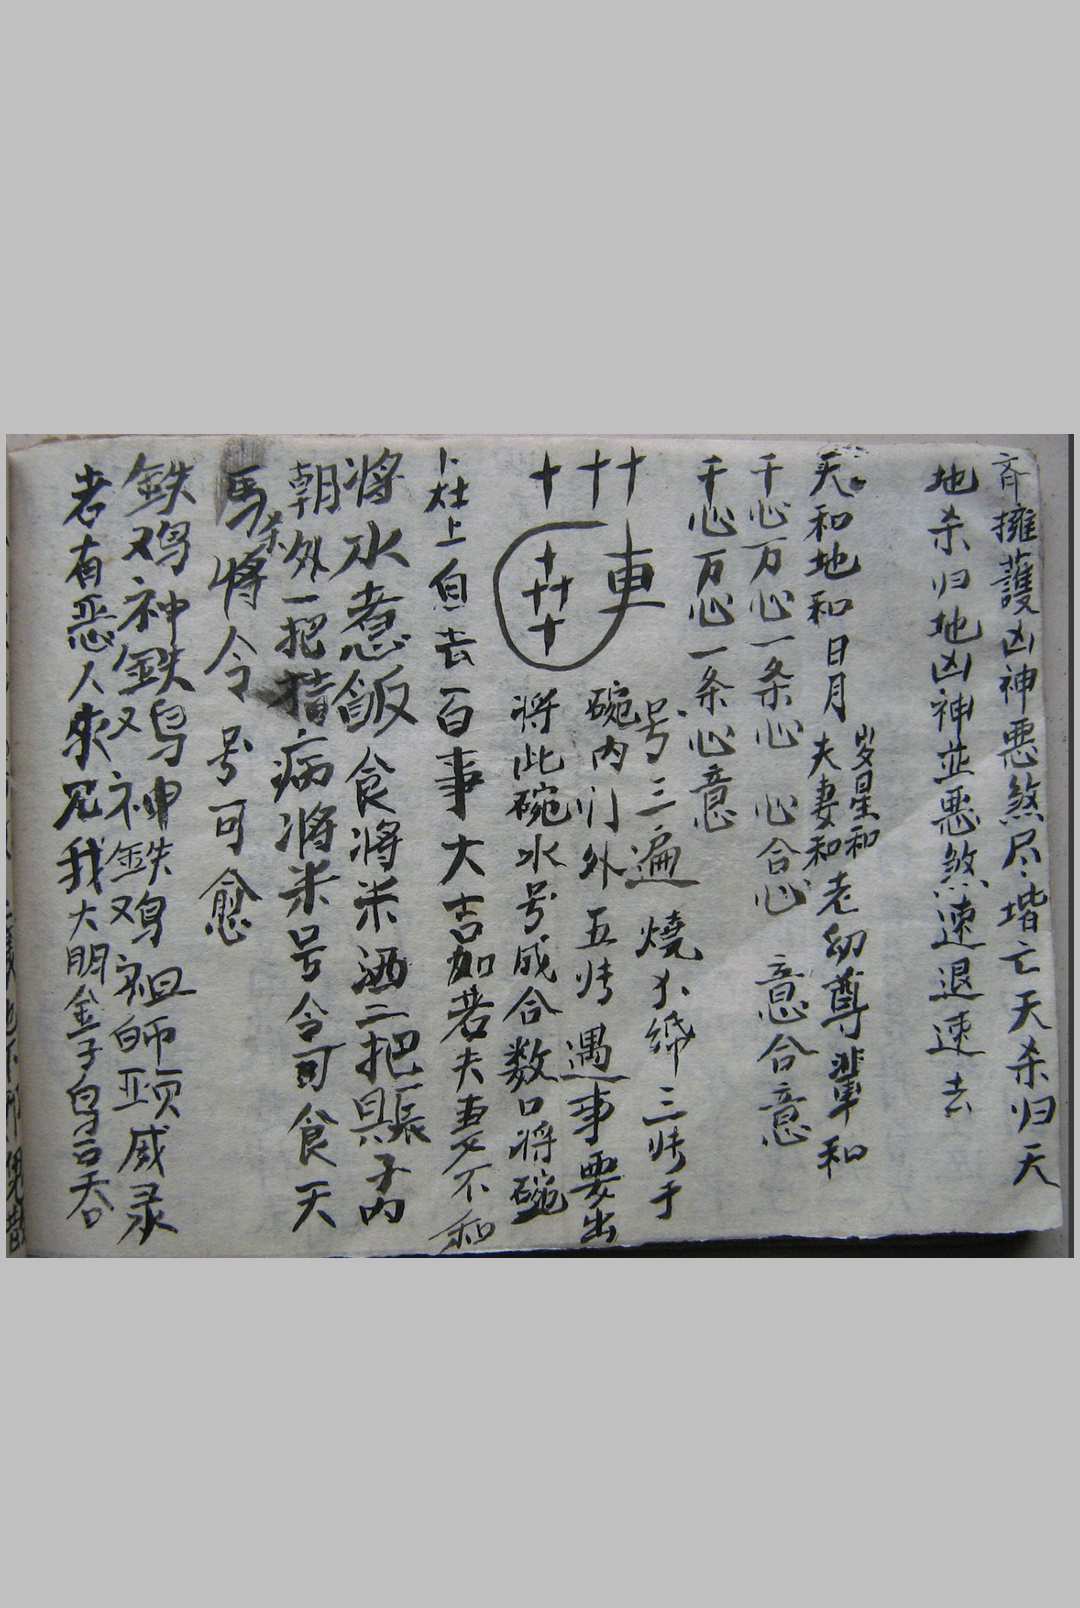 斉擁護凶神悪煞尽堦亡天杀归天
地杀归地凶神並悪煞速退速去
天和地和日月岁星和夫妻和老幼尊輩和
千心万心一条心心合心意合意
千心万心一条心意
車号三遍燒 三 于
碗内门外五 遇事要出
将此碗水号成合数口将碗
上自去百事大吉如若夫妻不和
将水煮飯食将米洒三把 子内
朝外一把 病将米号令可食天
馬杀将令号可愈
鉄鸡神鉄鸡神鉄鸡祖师 威灵
若有恶人來 我大朋金子鸟 吞